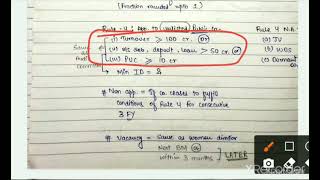 (fraction rounded upto 1)
Rule-4: App. to (unlisted) Public Co.
(i) Turnover ≥ 100 cr. (or)
(ii) o/s deb, deposit, loan > 50 cr. (or)
(iii) PUC ≥ 10 cr
→ Min ID = 2
Same as Audit Committee
Rule 4 N.A.
(a) JV
(b) WOS
(c) Dormant
# Non app. = If co. ceases to fulfil
conditions of Rule 4 for consecutive
3 FY
# Vacancy = Same as women director
Next BM (or)
within 3 months
LATER
XRecorder